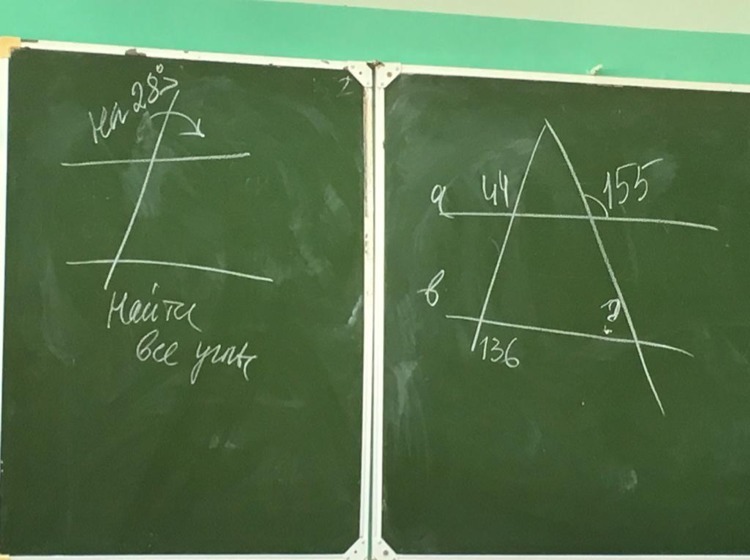 на 28° >
Найти
все углы
44
155
a
в
?
136